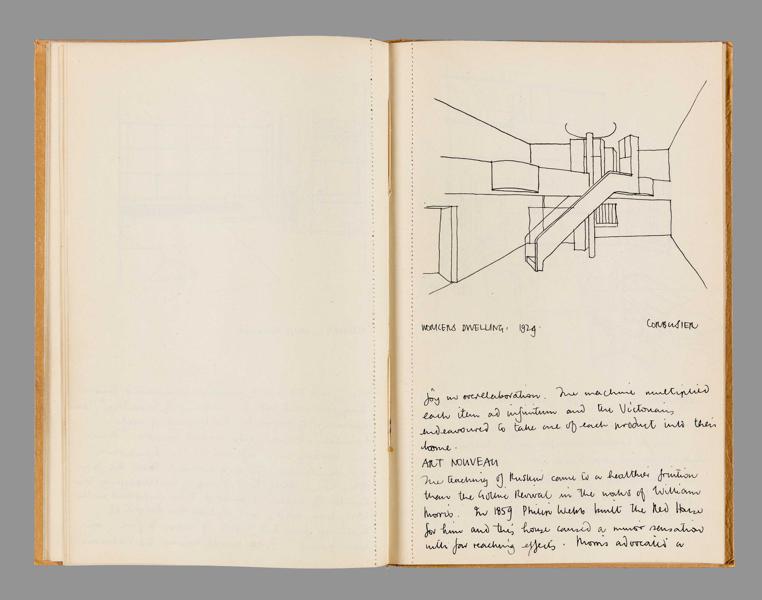 WORKERS DWELLING. 1929. CORBUSIER
joy in overelaboration. The machine multiplied
each item ad infinitum and the Victorians
endeavoured to take one of each product into their
home.
ART NOUVEAU
The teaching of Ruskin came to a healthier fruition
than the Gothic Revival in the works of William
Morris. In 1859 Philip Webb built the Red House
for him and this house caused a minor sensation
with far reaching effects. Morris advocated a